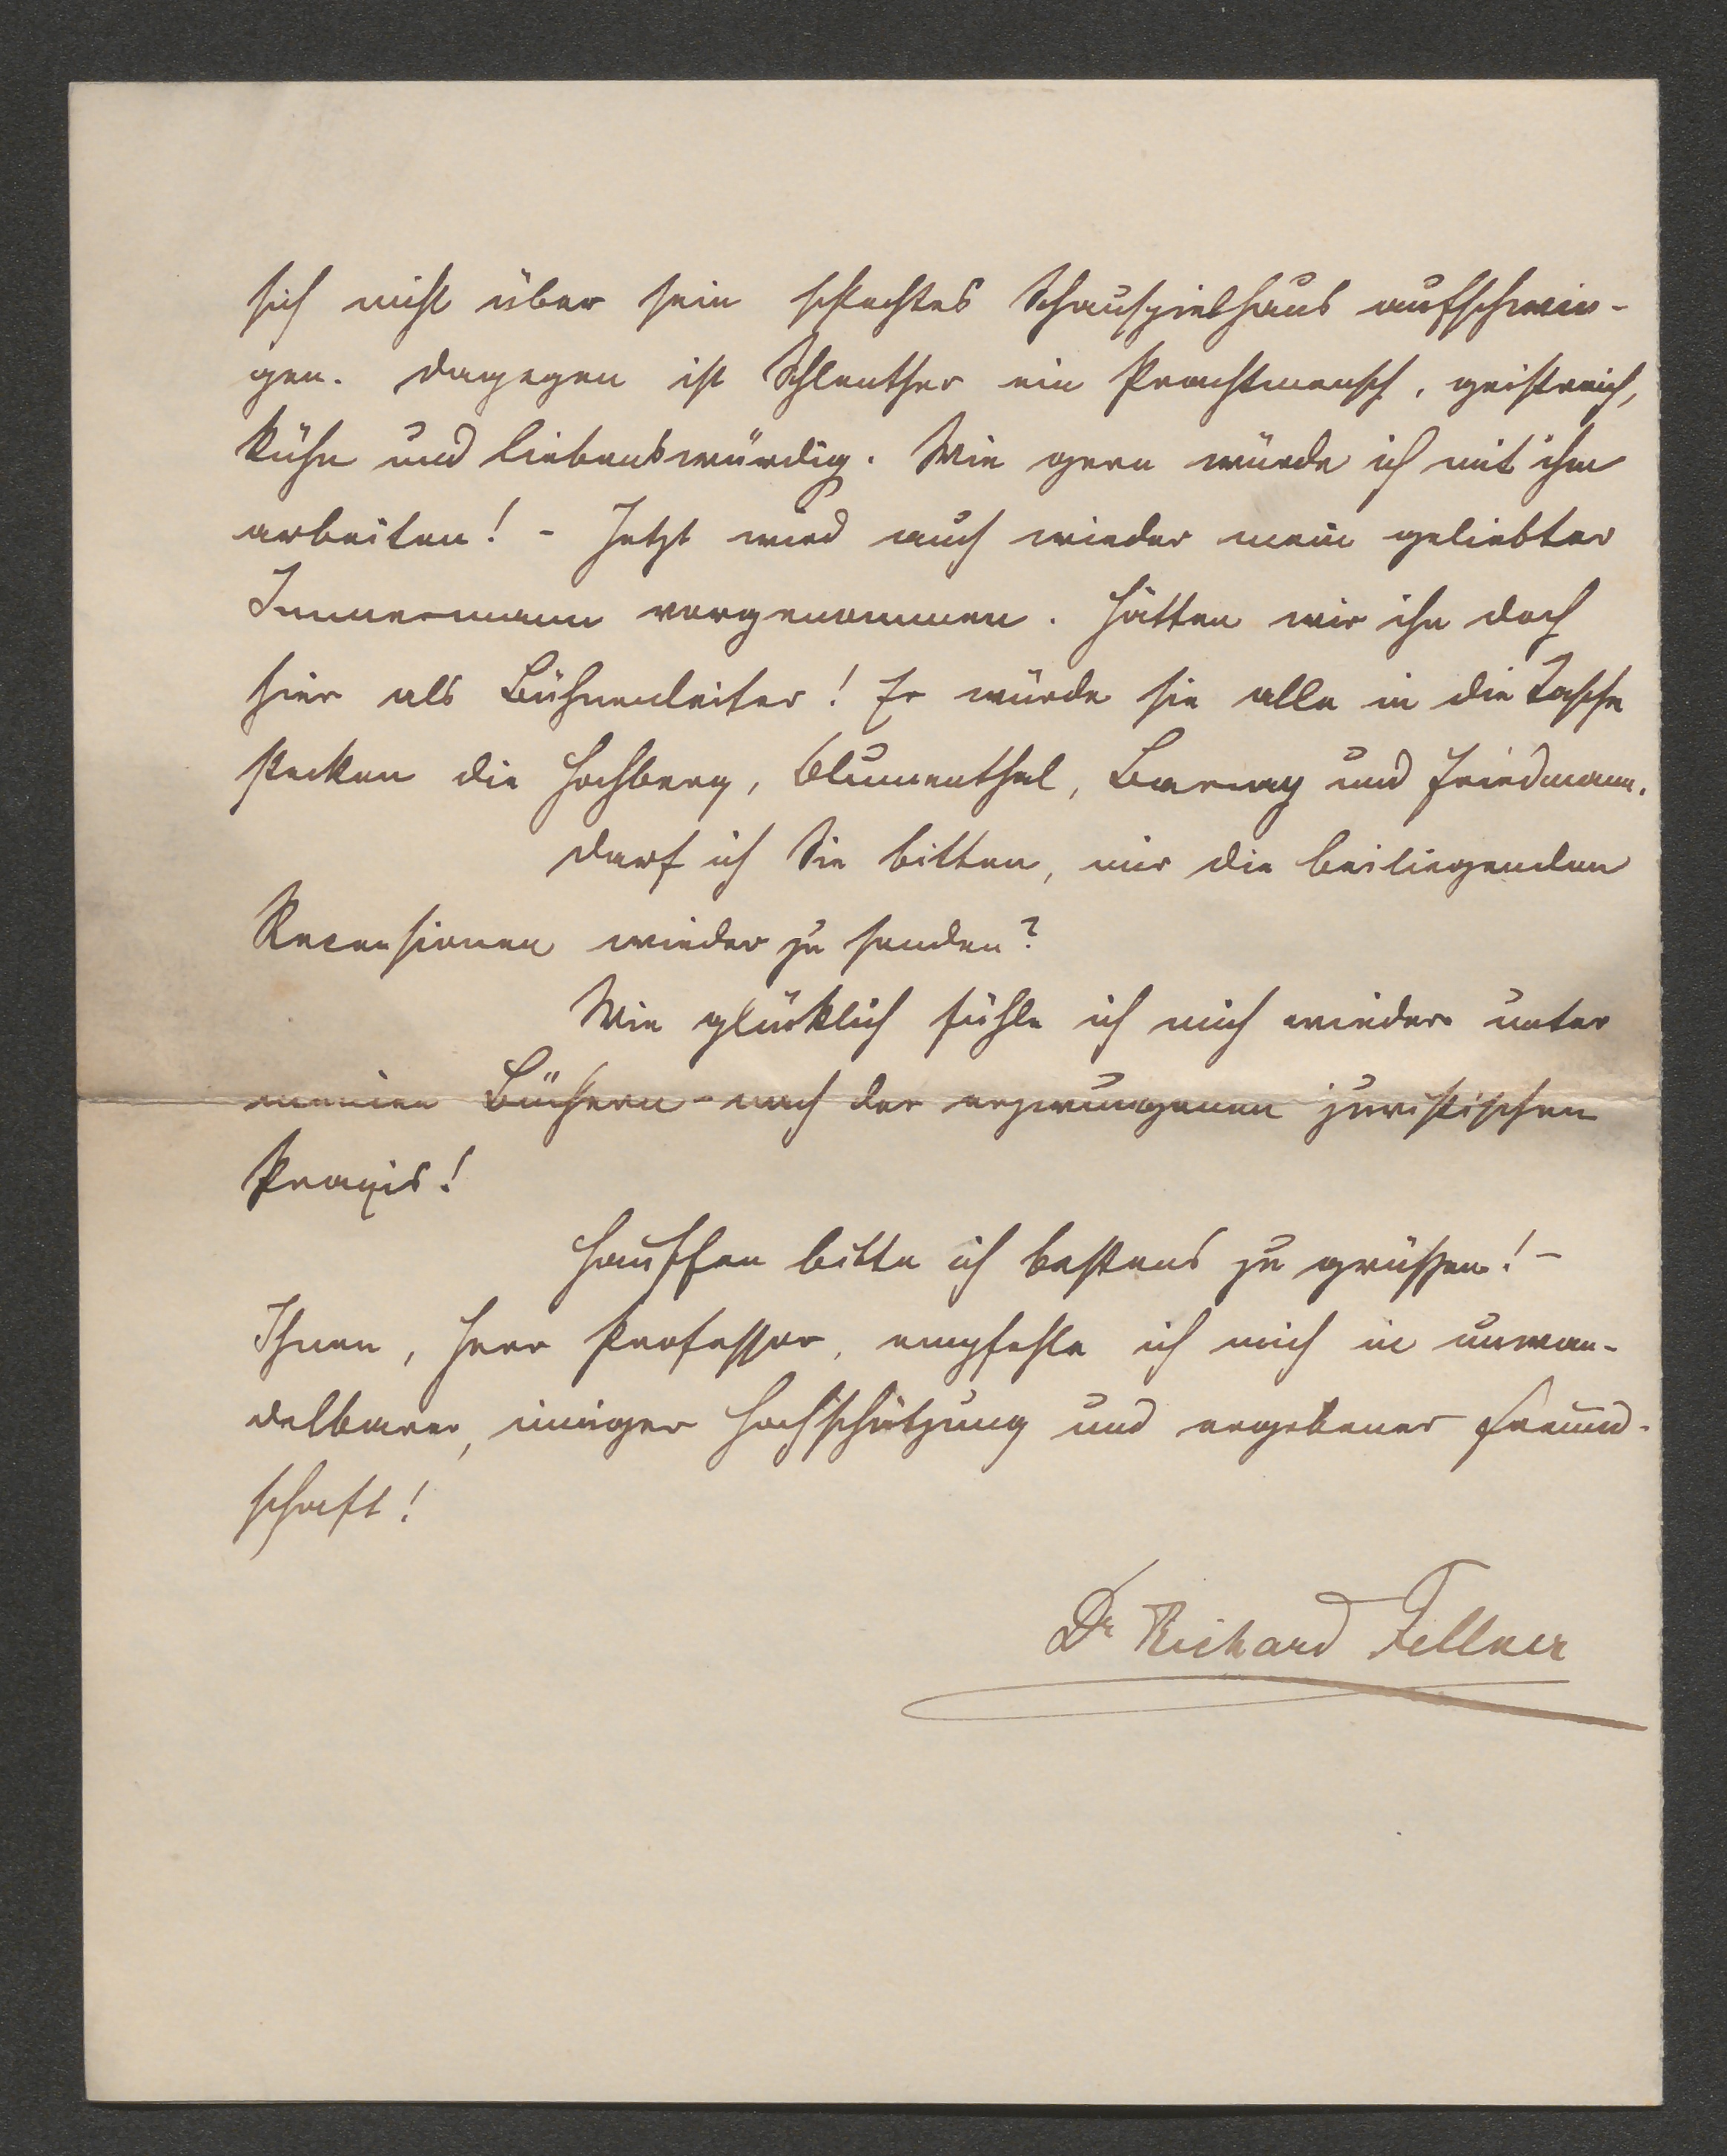 sich nicht über sein schlechtes Schauspielhaus aufschwin-
gen. Dagegen ist Schlenther ein Prachtmensch, geistreich,
kühn und liebenswürdig. Wie gern würde ich mit ihm
arbeiten! - Jetzt wird auch wieder mein geliebter
Immermann vorgenommen. Hätten wir ihn doch
hier als Bühnenleiter! Er würde sie alle in die Tasche
stecken die Hochberg, Blumenthal, Barnay und Friedmann.
Darf ich Sie bitten, mir die beiliegenden
Recensionen wieder zu senden?
Wie glücklich fühle ich mich wieder unter
meinen Büchern - nach der erzwungenen juristischen
Praxis!
Hauffen bitte ich bestens zu grüßen! -
Ihnen, Herr Professor, empfehle ich mich in unwan-
delbarer, inniger Hochschätzung und ergebener Freund-
schaft!
Dr Richard Fellner